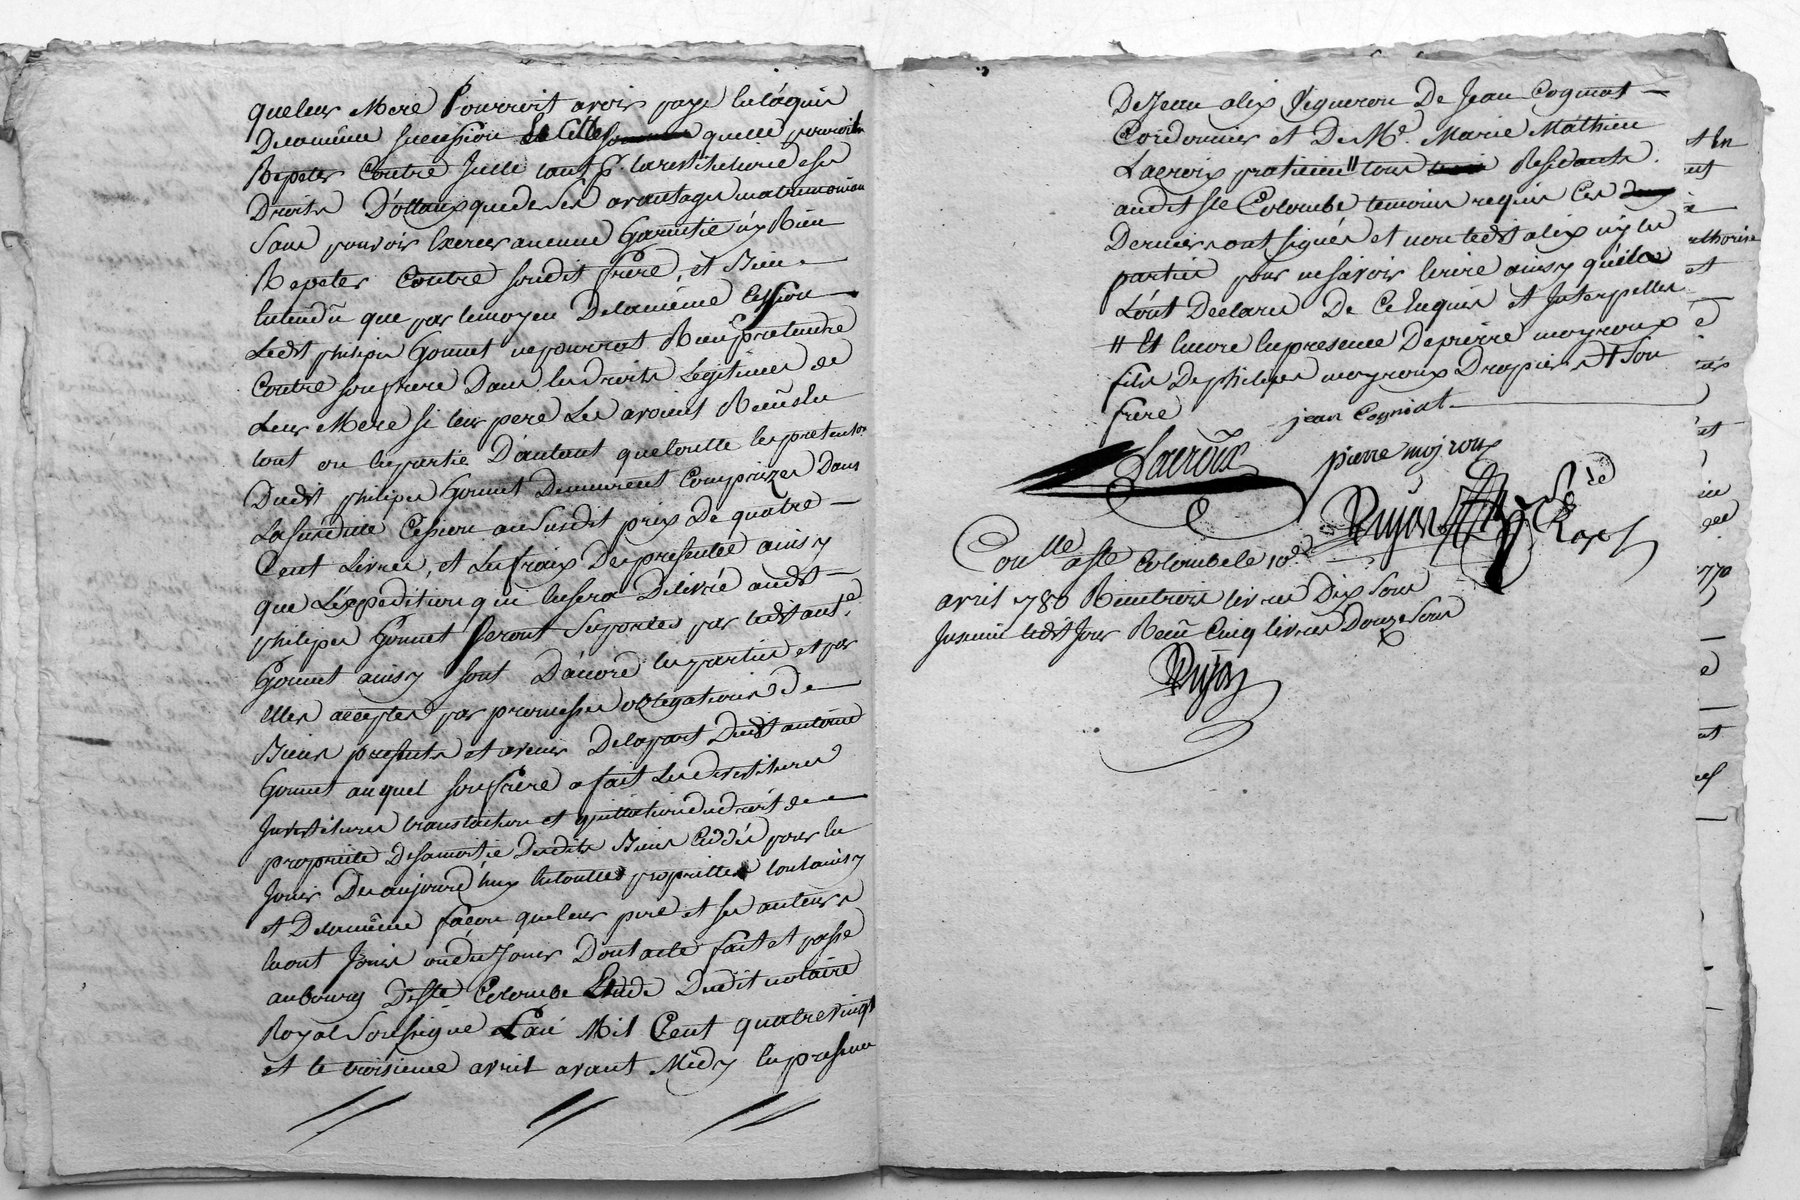 queleur Mere Pourroit avoir payé en l'aquis
De la même succession Le Celles quelle pourroit
Repeter Contre Icelle tant p. la restitution de ses
Droits D'ottaux que de ses avantages matrimoniau
Sans pouvoir Exercer aucune Garantie n'y Rien
Repeter Contre sondit frere, et Bien
Entendu que par le moyen De la même Cession
Ledit philipe Gonnet ne pourrat Rien pretendre
Contre son frere Dans les droits Legitimes de
Leur Mere si leur pere Les avoient Reçus en
tout ou en partie D'autant que toutte les pretention
Dudit philipe Gonnet Demeurent Comprizes Dans
La susditte Cession au susdit prix De quatre
Cent Livres, et Les fraix Des presentes ainsy
que L'expedition qui en sera Delivré audit
philipe Gonnet seront suportés par ledit ante
Gonnet ainsy sont D'acord les parties et par
elles acceptes par promesses obligations de
Biens presents et avenir De la part Dudit antoine
Gonnet au quel son frere a fait Les devestitures
Investitures translation et quittation du droit de
propriete De sa moitié Desdits Biens Ceddés pour en
Jouir Des aujourd'huy en toutte proprietté tout ainsy
et De la même façon que leur pere et ses auteurs
en ont Joüis ou dû Jouir Dont acte fait et passé
au bourg De Ste Colombe Etude Dudit notaire
Royal Soussigné L'an Mil Cent quatre vingt
et le troisieme avril avant Midy En presence
De Jean alix Vigneron De Jean Cogniat
Cordonnier et De Me. Marie Mathieu
Lacroix praticien // tous Residants
audit Ste Colombe temoins requis Ces
Derniers ont signés et non ledit alix n'y les
parties pour ne savoir Ecrire ainsy qu'ils
L'ont Declaré De Ce Enquis et Interpellés
// Et Encore En presence De pierre moyroux
fils De philipe moyroux Drapier et son
frere jean Cogniat
Lacroix pierre moyroux
Dujon
Roy
Conllé a Ste Colombe le 10e
avril 1780 Reçu trois livres Dix Sous
Insinué ledit Jour Reçu Cinq livres Douze Sous
Dujon